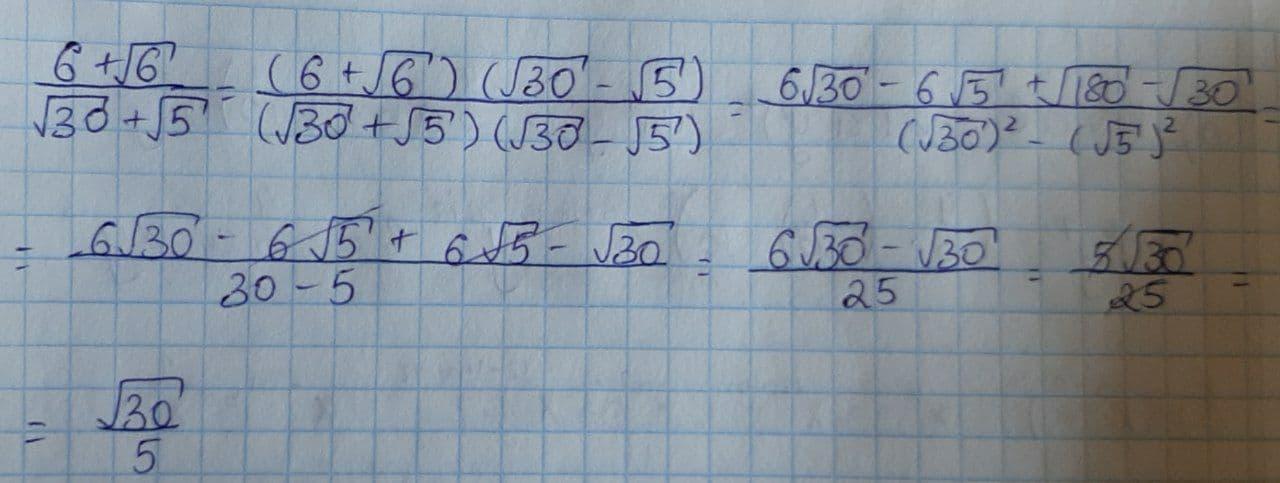 (6+√6)/(√30+√5) = ((6+√6)(√30-√5))/((√30+√5)(√30-√5)) = (6√30-6√5+√180-√30)/((√30)²-(√5)²) =
= (6√30-6√5+6√5-√30)/(30-5) = (6√30-√30)/25 = 5√30/25 =
= √30/5